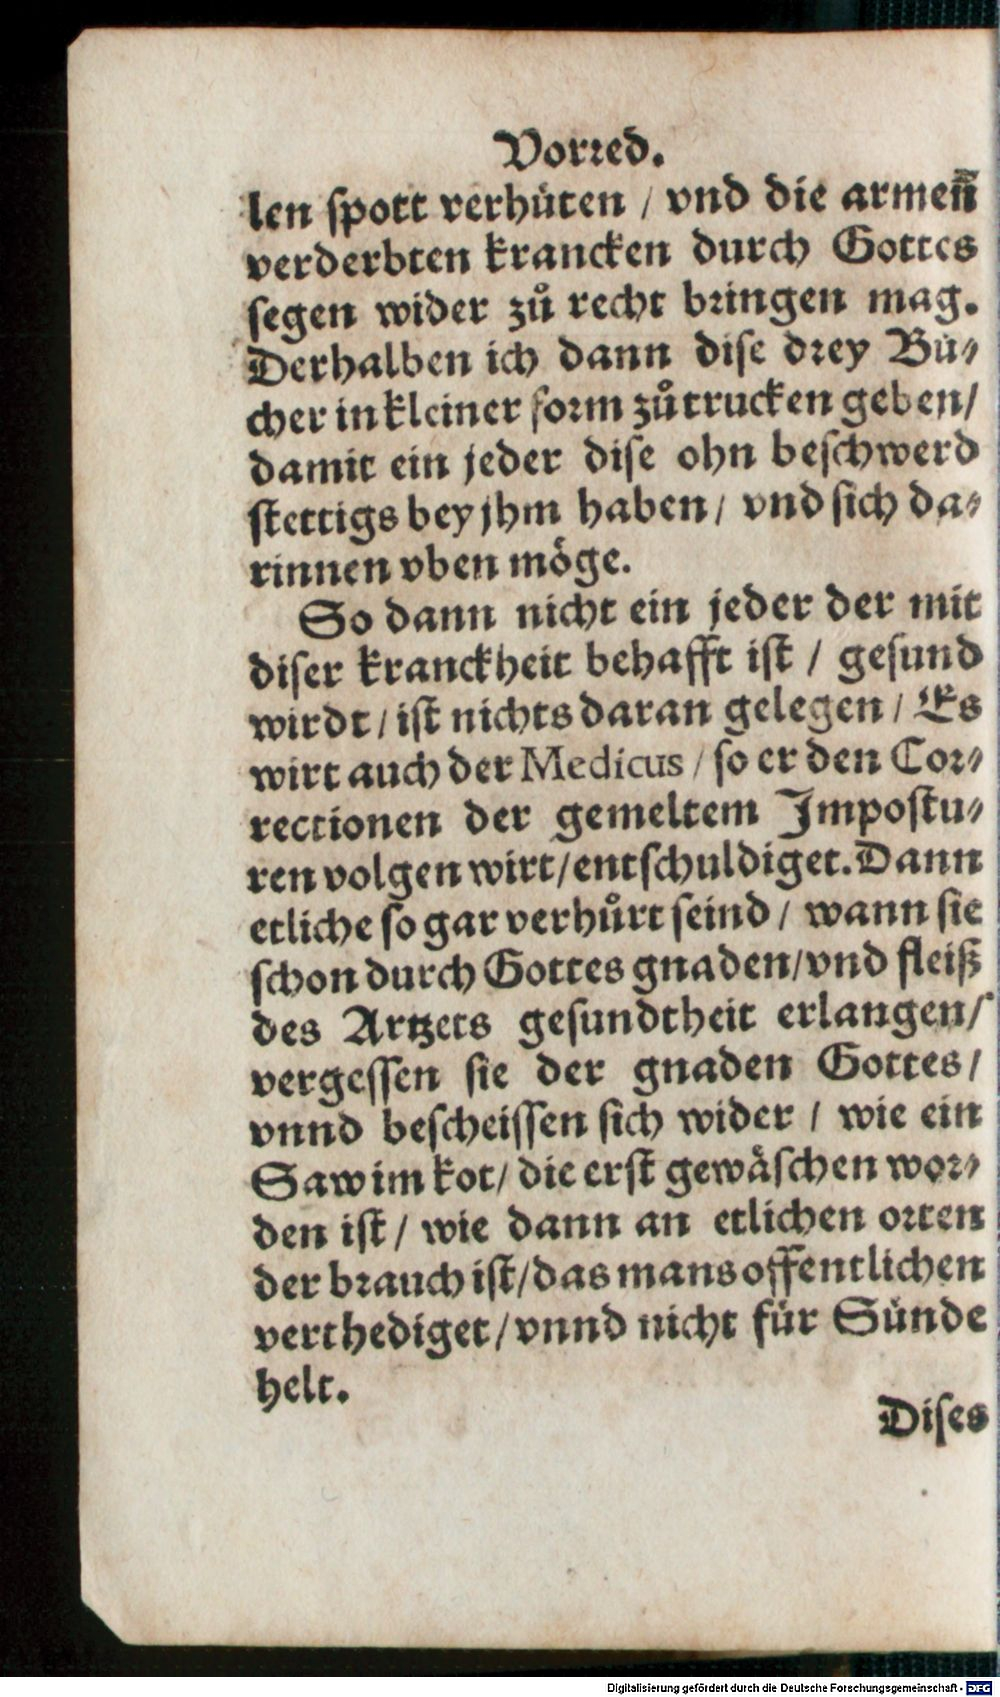 Vorred.
len spott verhüten / vnd die armeñ
verderbten krancken durch Gottes
segen wider zů recht bringen mag.
Derhalben ich dann dise drey Bü⸗
cher in kleiner form zů trucken geben/
damit ein jeder dise ohn beschwerd
stettigs bey jhm haben / vnd sich da⸗
rinnen vben möge.
So dann nicht ein jeder der mit
diser kranckheit behafft ist / gesund
wirdt / ist nichts daran gelegen / Es
wirt auch der Medicus / so er den Cor⸗
rectionen der gemeltem Impostu⸗
ren volgen wirt/entschuldiget. Dann
etliche so gar verhůrt seind / wann sie
schon durch Gottes gnaden/vnd fleiß
des Artzets gesundtheit erlangen/
vergessen sie der gnaden Gottes /
vnnd bescheissen sich wider / wie ein
Saw im kot / die erst gewäschen wor⸗
den ist / wie dann an etlichen orten
der brauch ist/das mans offentlichen
verthediget / vnnd nicht für Sünde
helt.
Dises
Digitalisierung gefördert durch die Deutsche Forschungsgemeinschaft - DFG